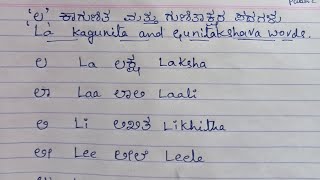 'ಲ' ಕಾಗುಣಿತ ಮತ್ತು ಗುಣಿತಾಕ್ಷರ ಪದಗಳು
'La' kagunita and gunitakshara words.
ಲ La ಲಕ್ಷ Laksha
ಲಾ Laa ಲಾಲಿ Laali
ಲಿ Li ಲಿಖಿತ Likhitha
ಲೀ Lee ಲೀಲೆ Leele